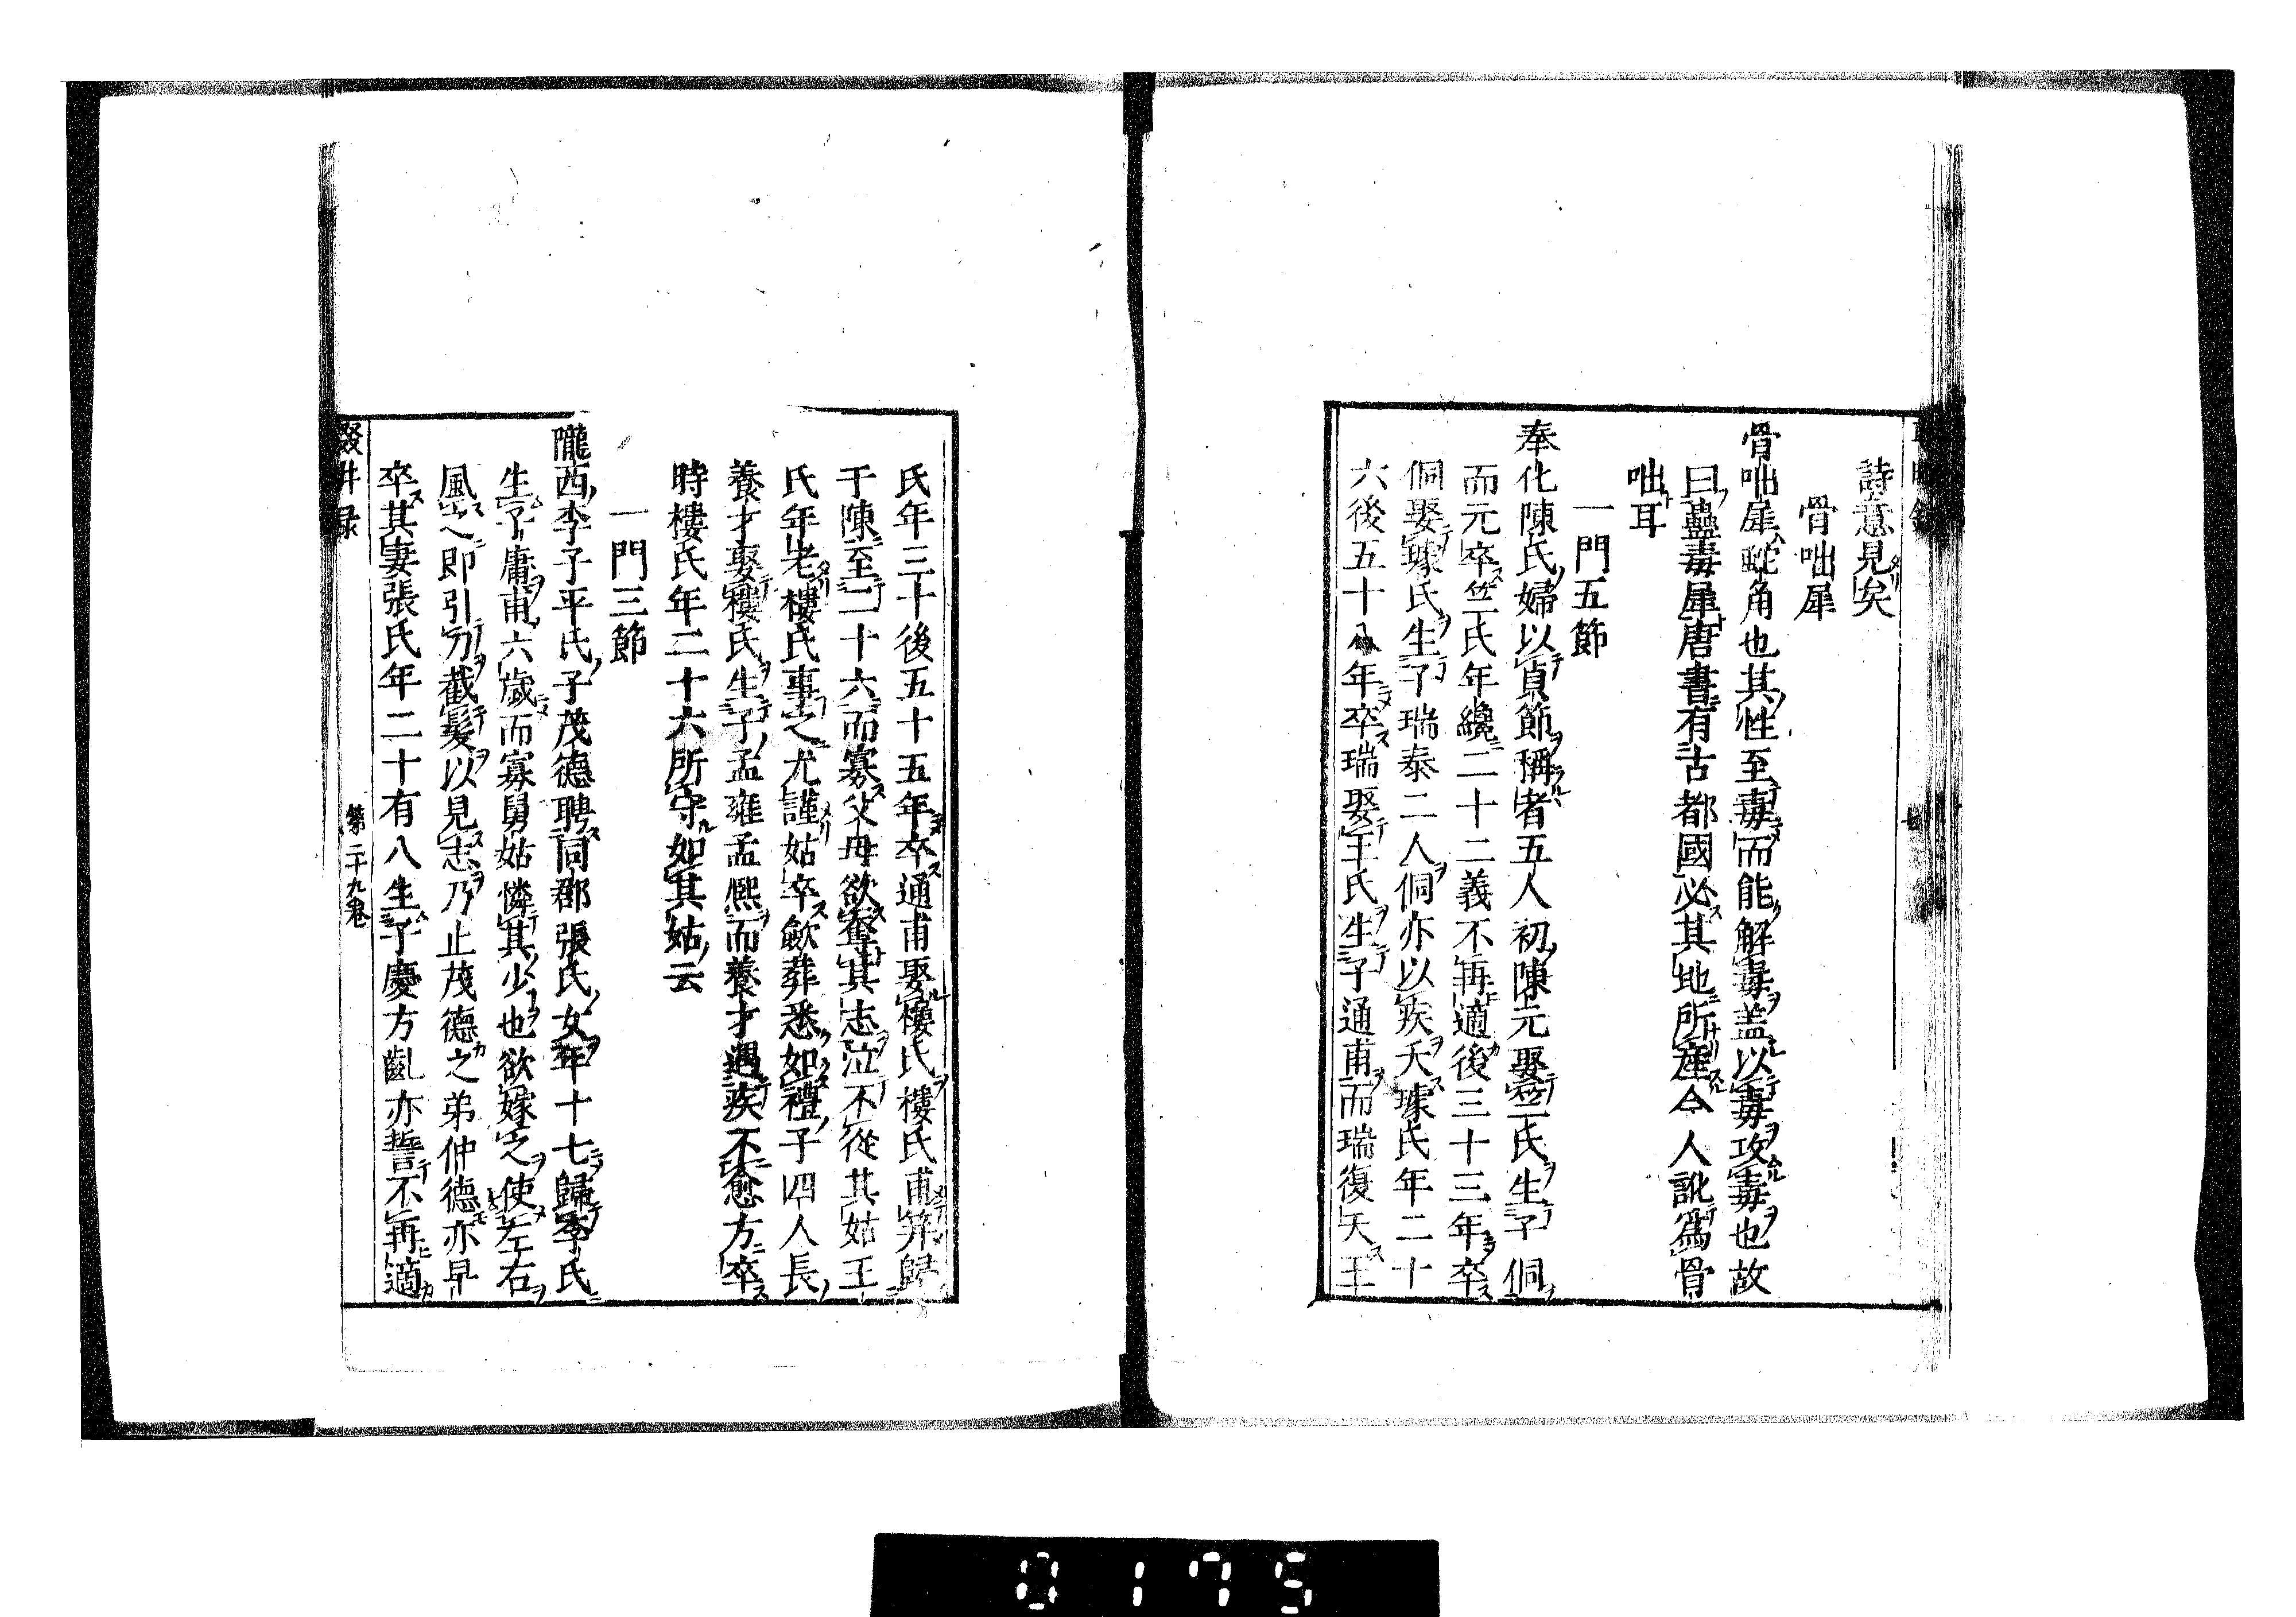 詩意見矣
骨咄犀
骨咄犀虵角也其性至毒而能解毒盖以毒攻毒也故
曰蠱毒犀唐書有古都國必其地所產今人訛爲骨
咄耳
一門五節
奉化陳氏婦以貞節稱者五人初陳元娶竺氏生子侗
而元卒竺氏年纔二十二義不再適後三十三年卒
侗娶璩氏生子瑞泰二人侗亦以疾夭璩氏年二十
六後五十八年卒瑞娶王氏生子通甫而瑞復夭王
氏年三十後五十五年卒通甫娶樓氏樓氏甫筓歸
于陳至二十六而寡父母欲奪其志泣不從其姑王
氏年老樓氏事之尤謹姑卒歛葬悉如禮子四人長
養才娶樓氏生子孟雍孟熈而養才遇疾不愈方卒
時樓氏年二十六所守如其姑云
一門三節
隴西李子平氏子茂德聘同郡張氏女年十七歸李氏
生子庸甫六歲而寡舅姑憐其少也欲嫁之使左右
風之即引刀截髮以見志乃止茂德之弟仲德亦早
卒其妻張氏年二十有八生子慶方齓亦誓不再適
輟耕录
第二十九卷